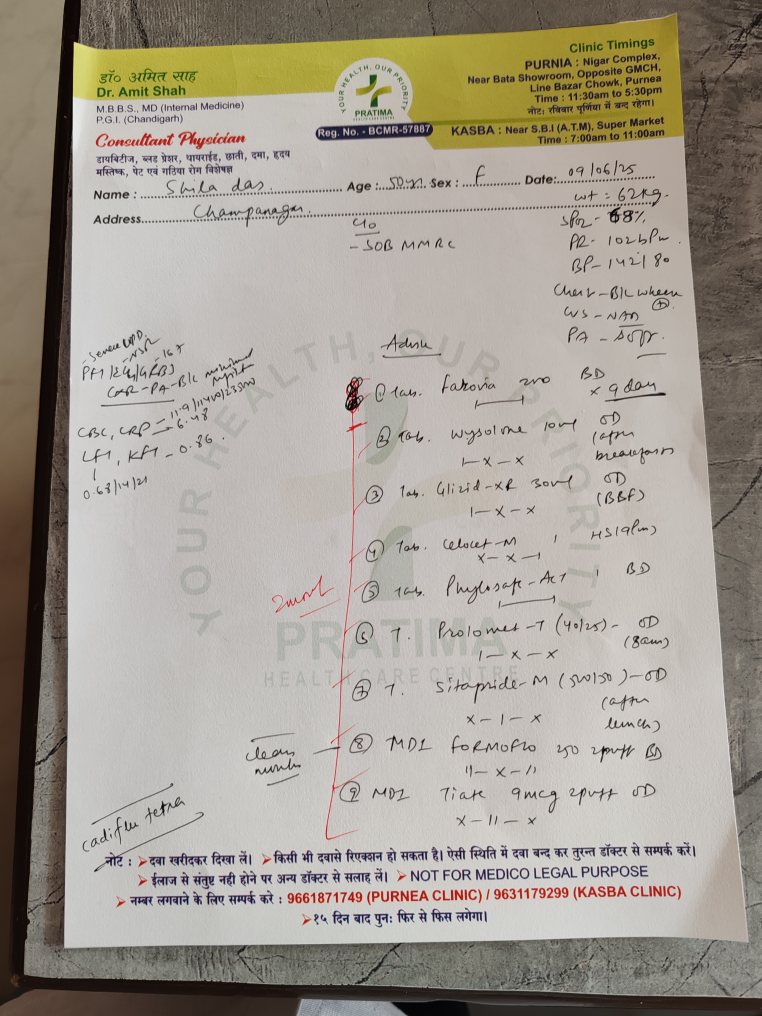 डॉ० अमित साह
Dr. Amit Shah
M.B.B.S., MD (Internal Medicine)
P.G.I. (Chandigarh)
Consultant Physician
डायबिटीज, ब्लड प्रेशर, थायराईड, छाती, दमा, हृदय
मस्तिष्क, पेट एवं गठिया रोग विशेषज्ञ
YOUR HEALTH, OUR PRIORITY
PRATIMA
HEALTHCARE CENTRE
Reg. No. - BCMR-57887
Clinic Timings
PURNIA : Nigar Complex,
Near Bata Showroom, Opposite GMCH,
Line Bazar Chowk, Purnea
Time : 11:30am to 5:30pm
नोट: रविवार पूर्णिया में बन्द रहेगा।
KASBA : Near S.B.I (A.T.M), Super Market
Time : 7:00am to 11:00am
Name : Shila das Age : 50 yr Sex : F Date: 09/06/25
Address Champanagar
wt = 62kg
C/o
- SOB MMRC
SPO2 - 68%
PR - 102bpm
BP - 142/80
Chest - B/L wheeze
CVS - NAD
PA - Soft
Advise
CBC, CRP - 6.48
LFT, KFT - 0.86
0.68/14/21
① Tab. 200 BD
x 9 days
② Tab. Wysolone 10mg OD
(after breakfast)
1-x-x
③ Tab. Glizid-XR 30mg OD
(BBF)
1-x-x
④ Tab. -M 1 HS (9pm)
x-x-1
⑤ Tab. 1 BD
2 month
⑥ T. Prolomet-T (40/25) - OD
(8am)
1-x-x
⑦ T. Sitapride-M (500/50) - OD
(after lunch)
x-1-x
⑧ MDI FORMOFLO 250 2puff BD
11-x-11
⑨ MDI Tiate 9mcg 2puff OD
x-11-x
cadiflu tetra
YOUR HEALTH, OUR PRIORITY
PRATIMA
HEALTHCARE CENTRE
नोट : दवा खरीदकर दिखा लें। किसी भी दवासे रिएक्शन हो सकता है। ऐसी स्थिति में दवा बन्द कर तुरन्त डॉक्टर से सम्पर्क करें।
ईलाज से संतुष्ट नही होने पर अन्य डॉक्टर से सलाह लें। NOT FOR MEDICO LEGAL PURPOSE
नम्बर लगवाने के लिए सम्पर्क करे : 9661871749 (PURNEA CLINIC) / 9631179299 (KASBA CLINIC)
१५ दिन बाद पुन: फिर से फिस लगेगा।